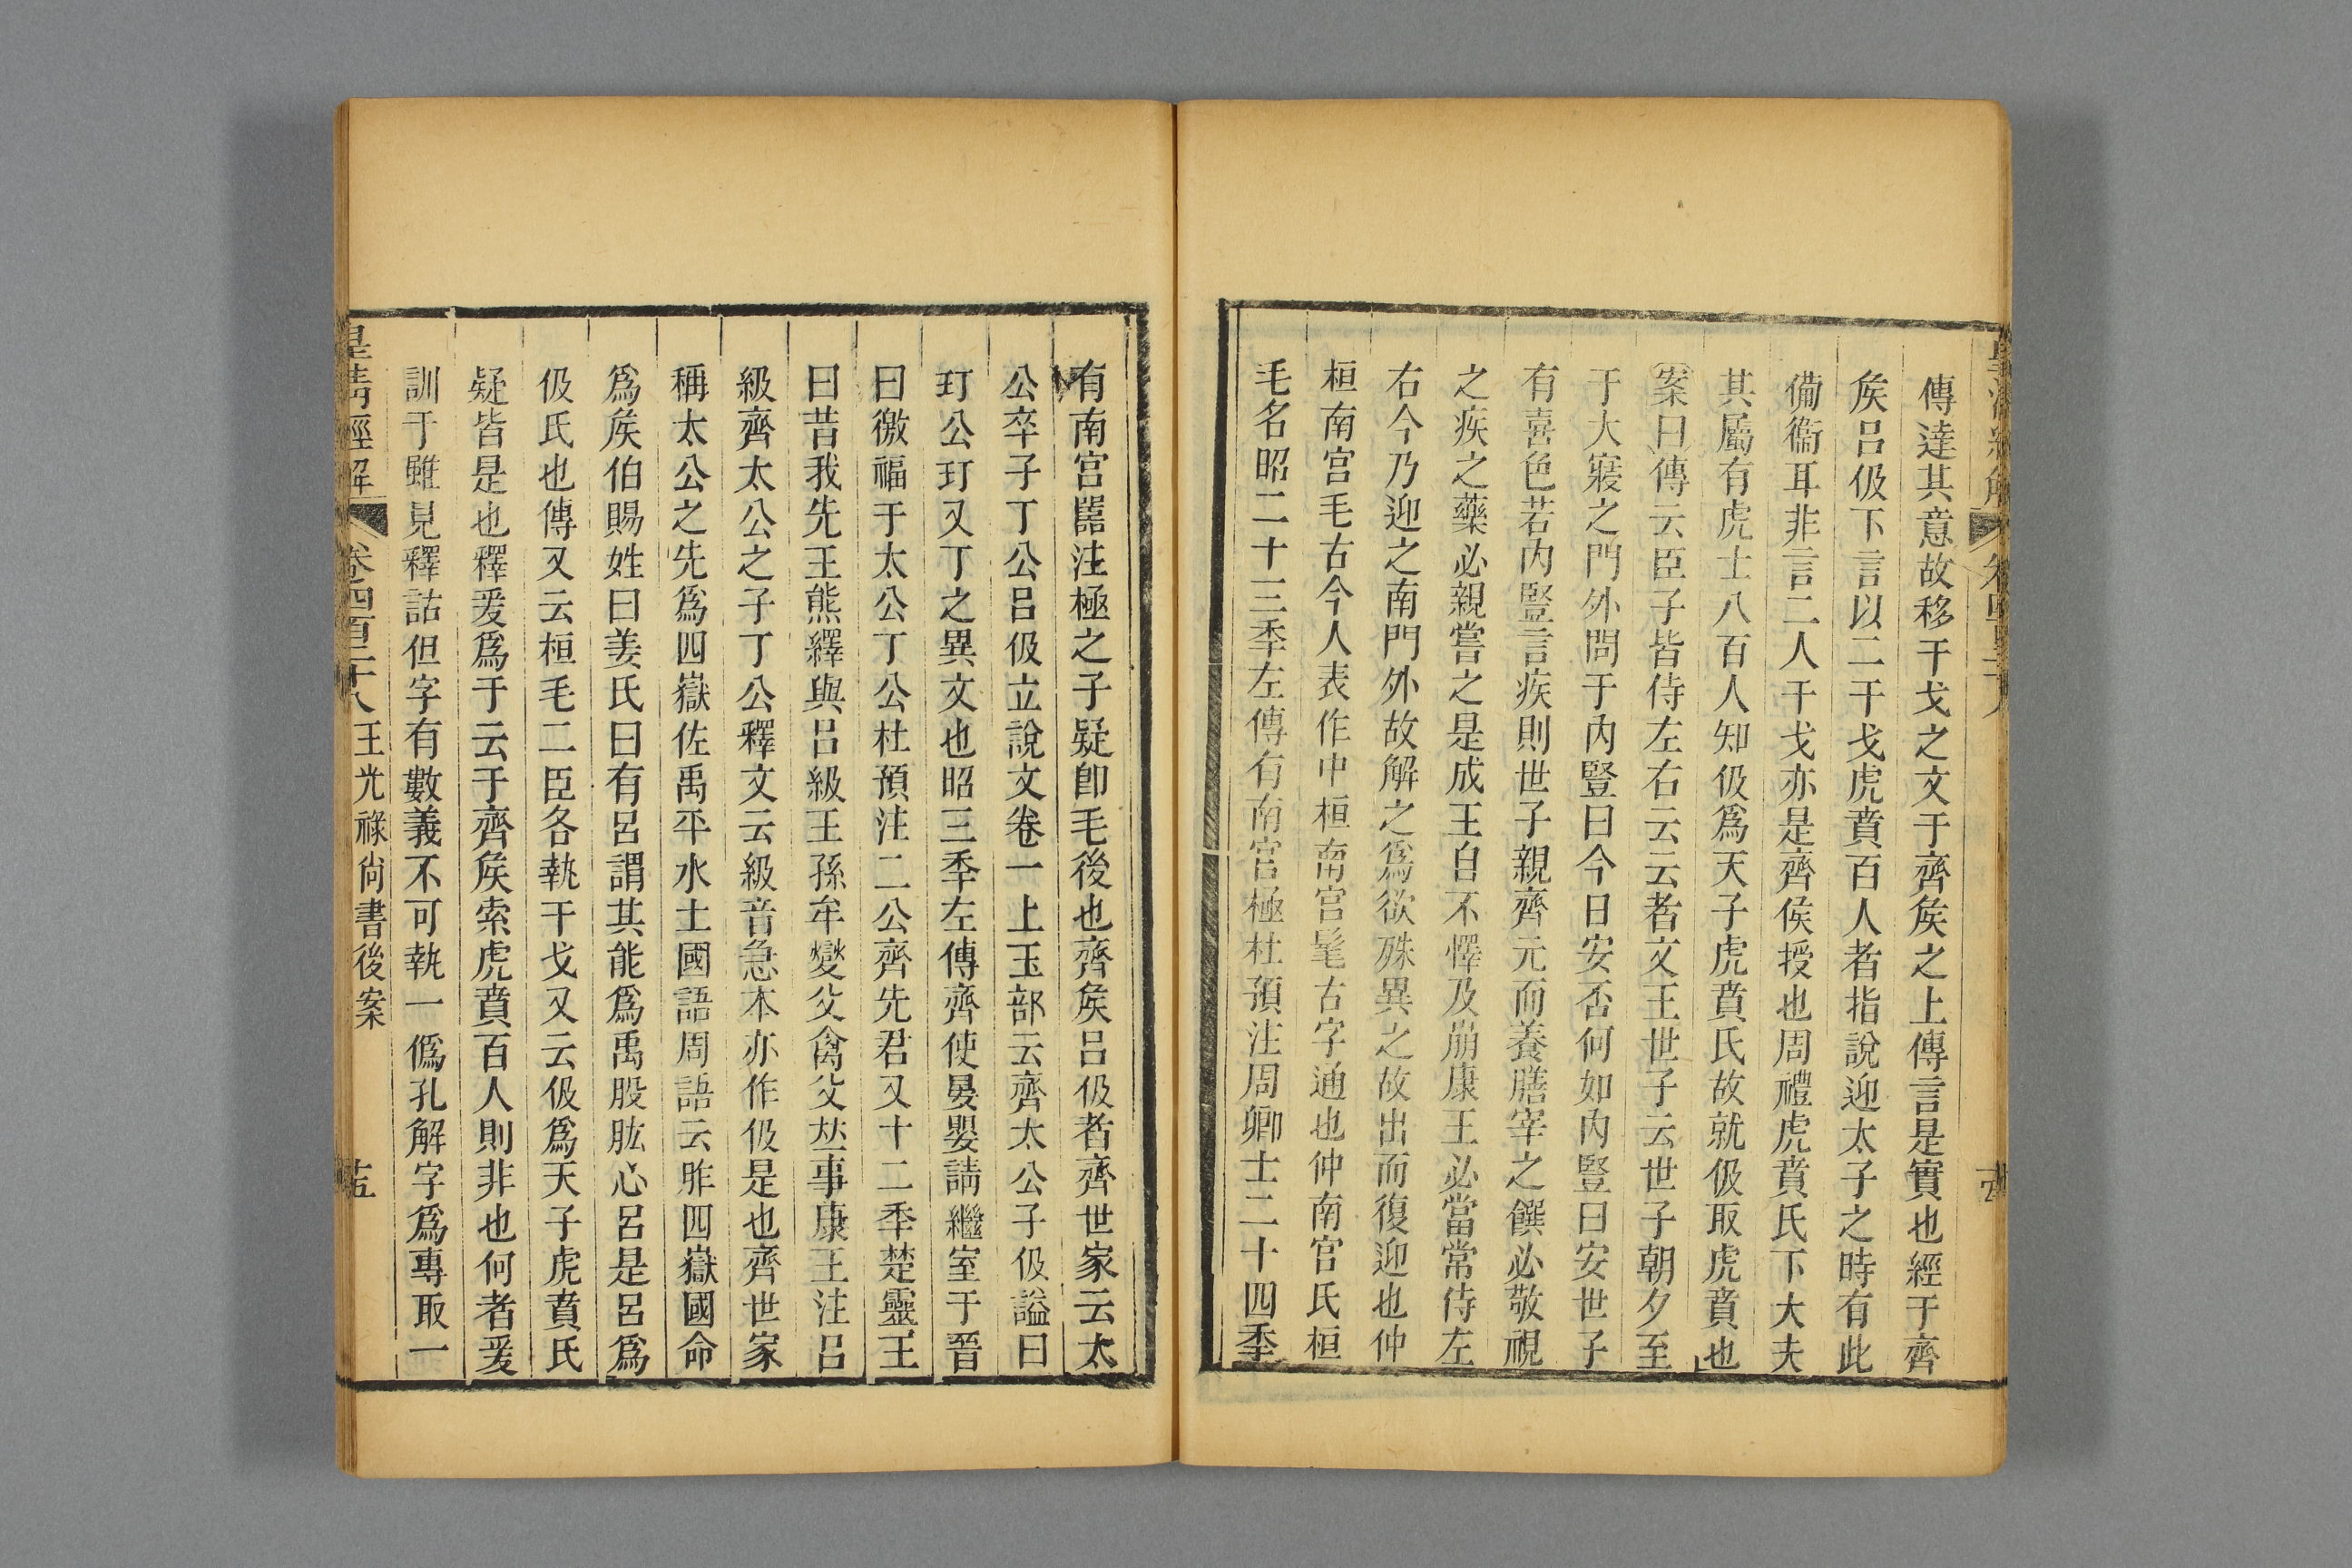 傳達其意故移干戈之文于齊矦之上傳言是實也經于齊
矦呂伋下言以二干戈虎賁百人者指說迎太子之時有此
備衞耳非言二人干戈亦是齊侯授也周禮虎賁氏下大夫
其屬有虎士八百人知伋爲天子虎賁氏故就伋取虎賁也
案曰傳云臣子皆侍左右云云者文王世子云世子朝夕至
于大寢之門外問于內豎曰今日安否何如內豎曰安世子
有喜色若內豎言疾則世子親齊元而養膳宰之饌必敬視
之疾之藥必親嘗之是成王自不懌及崩康王必當常侍左
右今乃迎之南門外故解之爲欲殊異之故出而復迎也仲
桓南宮毛古今人表作中桓南宮髦古字通也仲南宮氏桓
毛名昭二十三秊左傳有南宮極杜預注周卿士二十四秊
有南宮嚚注極之子疑卽毛後也齊矦呂伋者齊世家云太
公卒子丁公呂伋立說文卷一上玉部云齊太公子伋謚曰
玎公玎又丁之異文也昭三秊左傳齊使晏嬰請繼室于晉
曰徼福于太公丁公杜預注二公齊先君又十二秊楚靈王
曰昔我先王熊繹與呂級王孫牟變父禽父竝事康王注呂
級齊太公之子丁公釋文云級音急本亦作伋是也齊世家
稱太公之先爲四嶽佐禹平水土國語周語云昨四嶽國命
爲矦伯賜姓曰姜氏曰有呂謂其能爲禹股肱心呂是呂爲
伋氏也傳又云桓毛二臣各執干戈又云伋爲天子虎賁氏
疑皆是也釋爰爲于云于齊矦索虎賁百人則非也何者爰
訓于雖見釋詁但字有數義不可執一僞孔解字爲專取一
皇淸經解 卷四百三十八 王光祿尙書後案 十五